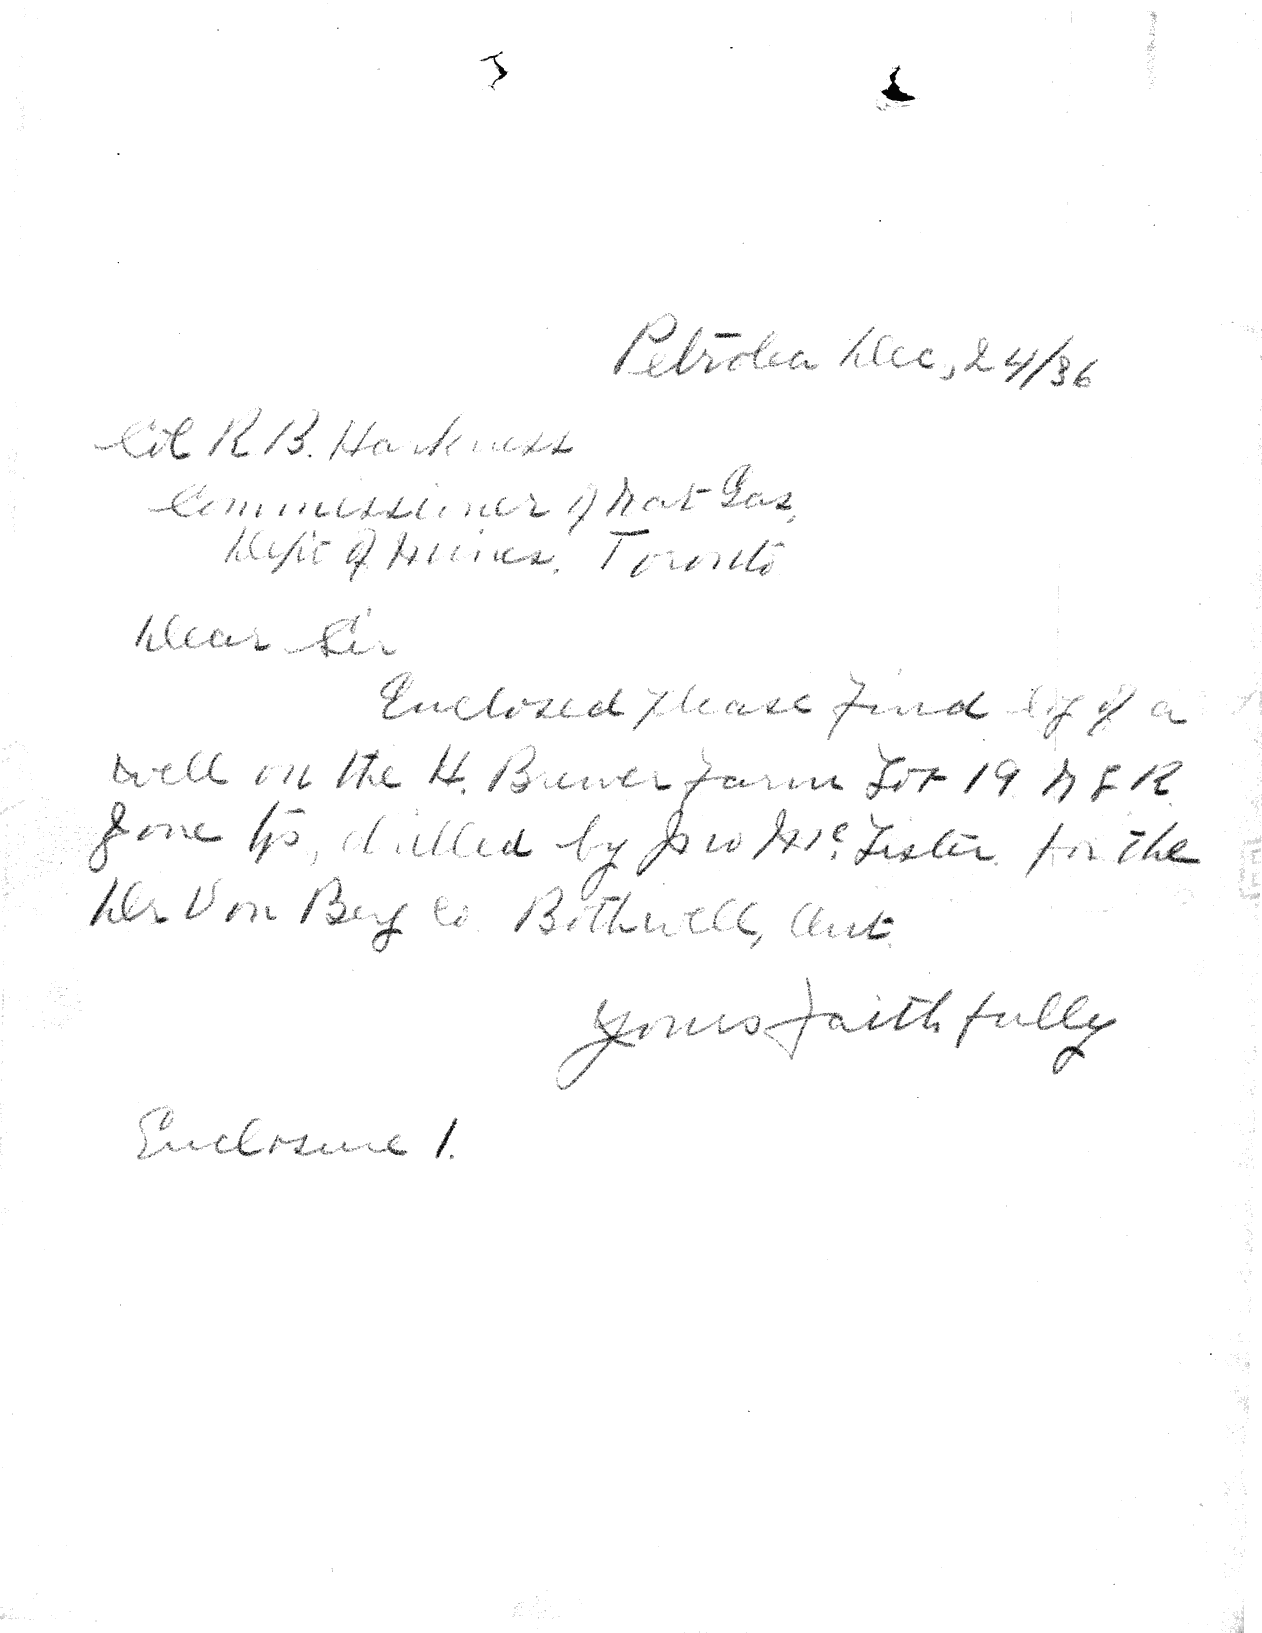 Petrolea Dec, 24/36
Col R B. Harkness
Commissioner of Nat Gas,
Dep't of Mines. Toronto
Dear Sir
Enclosed please find log of a
well on the H. Brewer farm Lot 19 N L R
Zone Tp, drilled by Jno Mc Lister for the
Dr Von Berg Co Bothwell, Ont.
Yours faithfully
Enclosure 1.